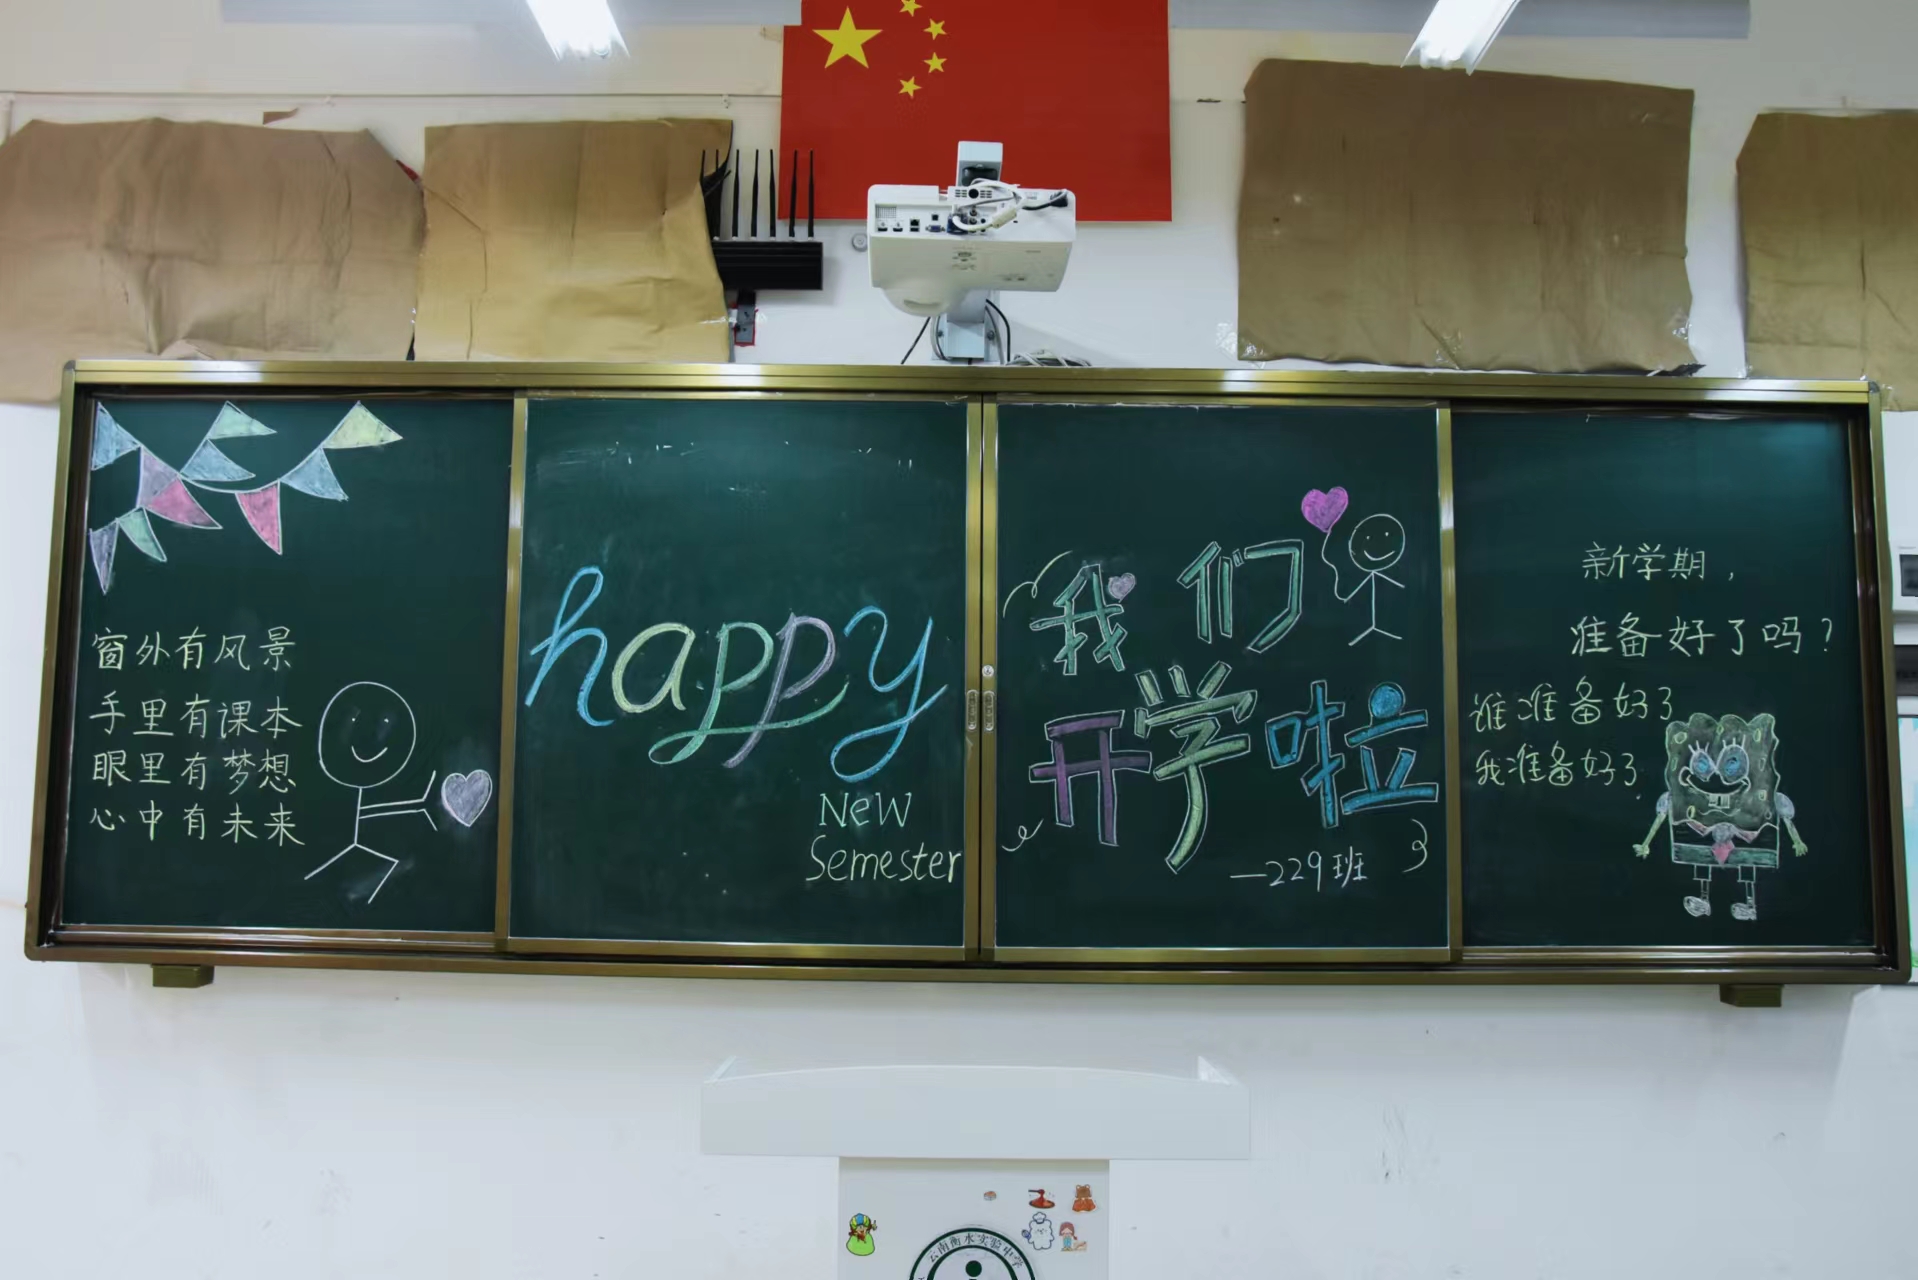 窗外有风景
手里有课本
眼里有梦想
心中有未来
happy
New
Semester
我们
开学啦
—229班
新学期，
准备好了吗？
谁准备好了
我准备好了
云南衡水实验中学